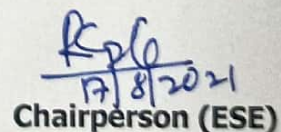 17/8/2021
Chairperson (ESE)